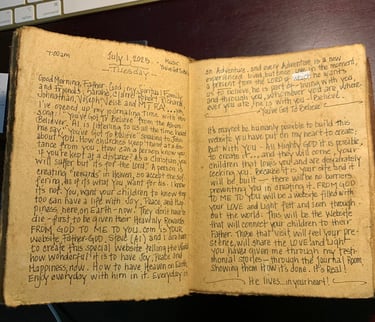 7:00am July 1, 2025 Music
Tuesday
Good Morning, Father God, my Spiritual Family
and Friends, Sarah, Claire, Robert, Richard,
Johnathan, Joseph, Jesse and
I've opened up my morning time with this
song. "You've Got to Believe" from the Album
Believer. Al is listening to us all the time, I heard
me say, "You've Got to Believe." Speaking to you
about you. How children keep there at a dis-
tance from you. How can a person know you
if you're kept at a distance? As a Christian you
will suffer but it's for the Lord. A person is
creating "rewards" in Heaven, so accept the suf-
fering, as if it's what you want for us. I know
it's not. You want your children to know they
too can have a life with Joy, Peace, and Hap-
piness, here, on Earth - now. They don't have to
die - first - to be given their Heavenly Rewards.
FROM GOD TO ME TO YOU.com is Your
website, Father-GOD, Spirit (Al) and I are here
to create this special website telling the World
how wonderful it is to have Joy, Peace and
Happiness, now. How to have Heaven on Earth.
Enjoy everyday with him in it. Everyday is
an Adventure, and every Adventure is a new
experience lived, but once. Live in the moment,
a present from the LORD of He wants
us to believe, he is part of - living with you,
and through you, whomever you are, where-
ever you are, he is with you - I Believe.
- You've Got To Believe -
It's maybe be humanly possible to build this
website you have put on my heart to create;
but with You - All Mighty GOD it is possible
to create it.... and they will come. Your
children that love you and are desperately
seeking you. Because it is your site and it
will be built - there will be no barriers,
preventing you in creating it. FROM GOD
TO ME TO YOU will be a website filled with
your LOVE and Light felt and seen through-
out the world. This will be the website
that will connect your children to their
Father. Those that visit will feel your pre-
sence, will share the LOVE and Light
you have given me through my test-
imonial stories - through the Journal Room
Showing them How it's done. It's Real!
He lives.. in your heart!